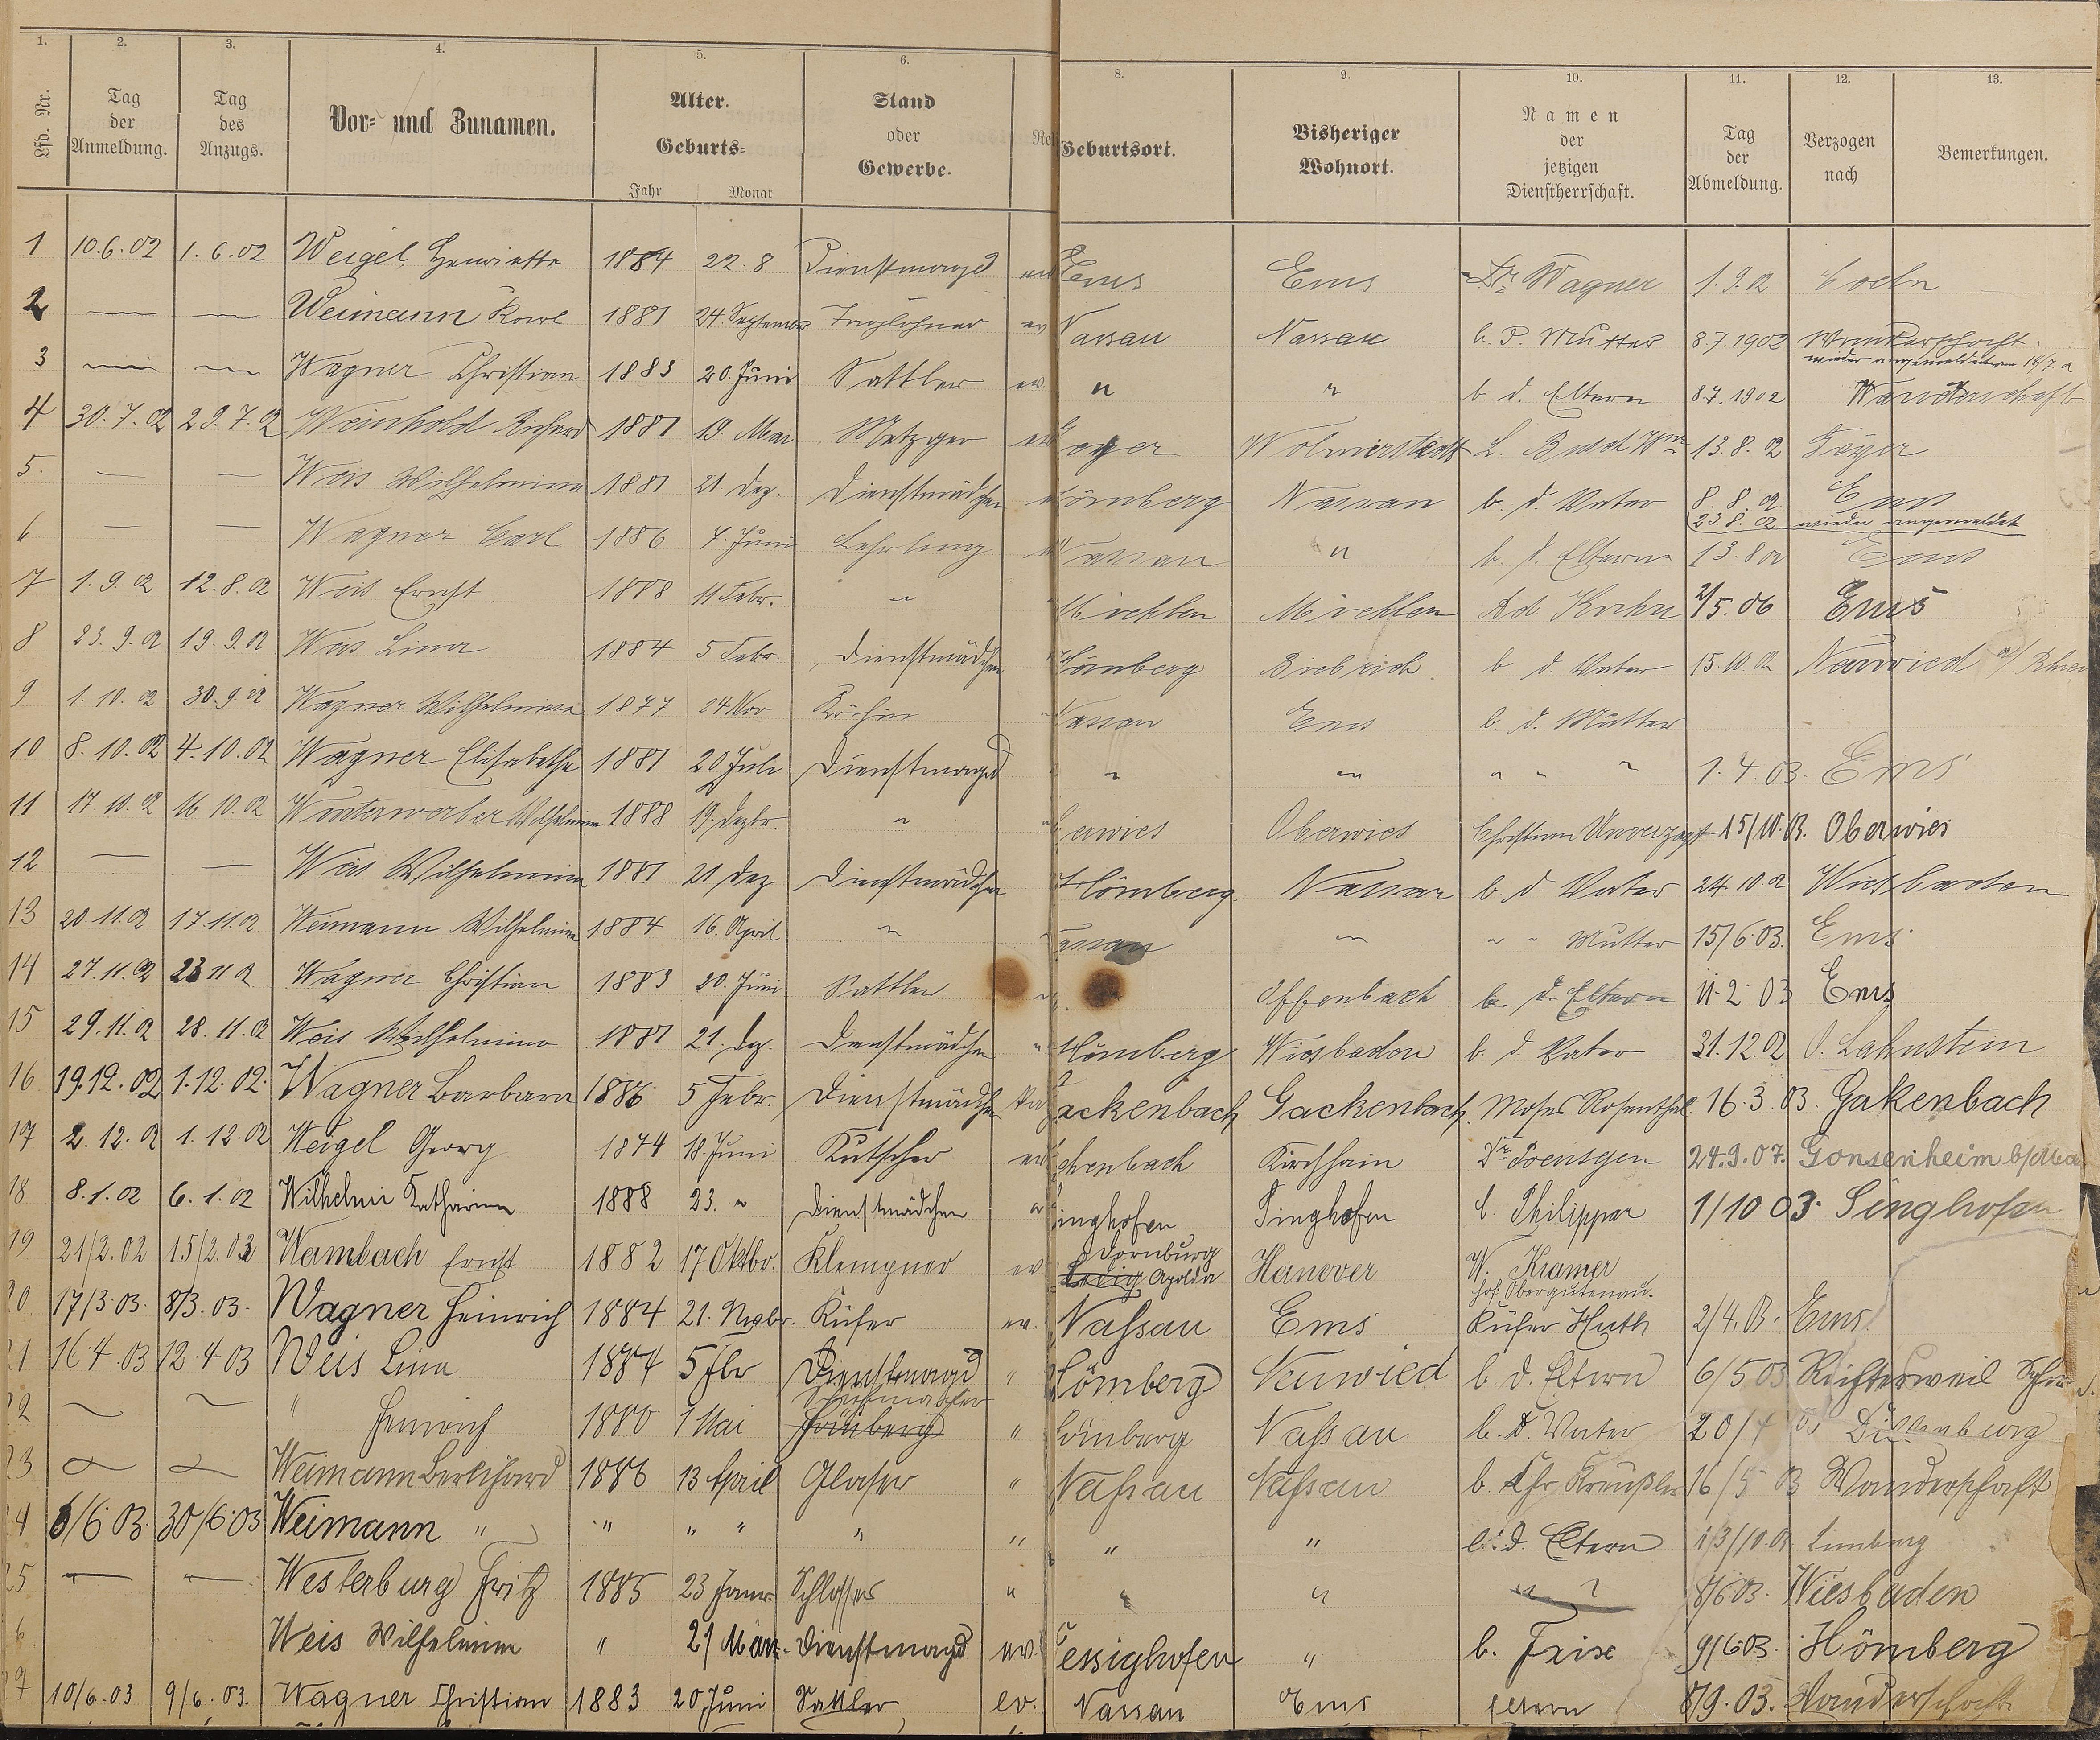 1. 2. 3. 4. 5. 6. 8. 9. 10. 11. 12. 13.
Lfd. Nr. Tag der Anmeldung. Tag des Anzugs. Vor- und Zunamen. Alter. Geburts- Jahr Monat Stand oder Gewerbe. Rel Geburtsort. Bisheriger Wohnort. Namen der jetzigen Dienstherrschaft. Tag der Abmeldung. Verzogen nach Bemerkungen.
1 10.6.02 1.6.02 Weigel Henriette 1884 22.8 Dienstmagd ev Ems Ems Dr. Wagner 1.9.02
2 — — Weimann Karl 1881 24. September Taglöhner ev Nassau Nassau b. d. Mutter 8.7.1902 Wanderschaft.
wieder angemeldet 14/7.02
3 — — Wagner Christian 1883 20. Juni Sattler ev " " b. d. Eltern 8.7.1902 Wanderschaft
4 30.7.02 29.7.02 Weinhold Richard 1881 19. Mai Metzger ev Geyer Wolmirstedt L. Busch Wwe 13.8.02 Geyer
5. — — Weis Wilhelmine 1881 21. Dez. Dienstmädchen Hömberg Nassau b. d. Vater 8.8.02 Ems
23.8.02 wieder angemeldet
6 — — Wagner Carl 1886 7. Juni Lehrling Nassau " b. d. Eltern 13.8.02 Ems
7 1.9.02 12.8.02 Weis Ernst 1888 11 Febr. " Miehlen Miehlen Ad Kuhn 2/5.06 Ems
8 23.9.02 19.9.02 Weis Lina 1884 5 Febr. Dienstmädchen Hömberg Biebrich. b. d. Vater 15.10.02 Neuwied a/ Rhein
9 1.10.02 30.9.02 Wagner Wilhelmine 1877 24 Nov Köchin Nassau Ems b. d. Mutter
10 8.10.02 4.10.02 Wagner Elisabethe 1881 20 Juli Dienstmagd " " " " " 1.4.03. Ems
11 17.10.02 16 10.02 Winterwerber Wilhelmine 1888 19. Dezbr. " erwies Oberwies Christian Unverzagt 15/10.03. Oberwies
12 — — Weis Wilhelmine 1881 21 Dez Dienstmädchen Hömberg Nassau b d Vater 24.10.02 Wiesbaden
13 20.11.02 17.11.02 Weimann Wilhelmine 1884 16. April " assau " " " Mutter 15/6.03. Ems
14 27.11.02 23 11.02 Wagner Christian 1883 20. Juni Sattler " Offenbach b. d. Eltern 11.2.03 Ems
15 29.11.02 28.11.02 Weis Wilhelmine 1881 21. Dez. Dienstmädchen " Hömberg Wiesbaden b. d Vater 31.12.02 O. Lahnstein
16 19.12.02 1.12.02. Wagner Barbara 1886 5 Febr. Dienstmädchen ka ackenbach Gackenbach. Moses Rosenthal 16.3.03. Gakenbach
17 2.12.02 1.12.02 Weigel Georg 1874 18. Juni Kutscher ev chenbach Kirchhain Dr. Poensgen 24.9.07. Gonsenheim b/Ma
18 8.1.02 6.1.02 Wilhelmi Katharina 1888 23. " Dienstmädchen ev inghofen Singhofen b. Philippar 1/10 03. Singhofen
19 21/2.02 15/2.03 Wambach Ernst 1882 17 Oktbr. Klempner ev Dornburg Apolda Hanover W. Kramer
hof Obergutenau.
20 17/3.03. 8/3.03. Wagner Heinrich 1884 21. Novbr. Küfer ev. Nassau Ems Küfer Huth 2/4.03. Ems.
21 16 4 03 12.4 03 Weis Lina 1884 5 Fbr Dienstmagd " Hömberg Neuwied b d. Eltern 6/5 03 Richterweil
22 ~ ~ " Heinrich 1880 1 Mai Schuhmacher Hömberg " Hömberg Nassau b. d. Vater 20/4 03 Dillenburg
23 ~ ~ Weimann Bernhard 1886 13 April Glaser " Nassau Nassau b. Chr Kreußler 16/5 03 Wanderschaft
24 6/6.03. 30/6.03. Weimann " " " " " " " " b. d. Eltern 13/10.03 Limburg
25 — — Westerburg Fritz 1885 23 Janr. Schlosser " " " " " 8/6 03. Wiesbaden
6 Weis Wilhelmine " 21 März. Dienstmagd ev. essighofen " b. Frix 9/6.03. Hömberg
27 10/6.03 9/6.03. Wagner Christian 1883 20 Juni Sattler ev. Nassau Ems Eltern 8/9.03. Wanderschaft